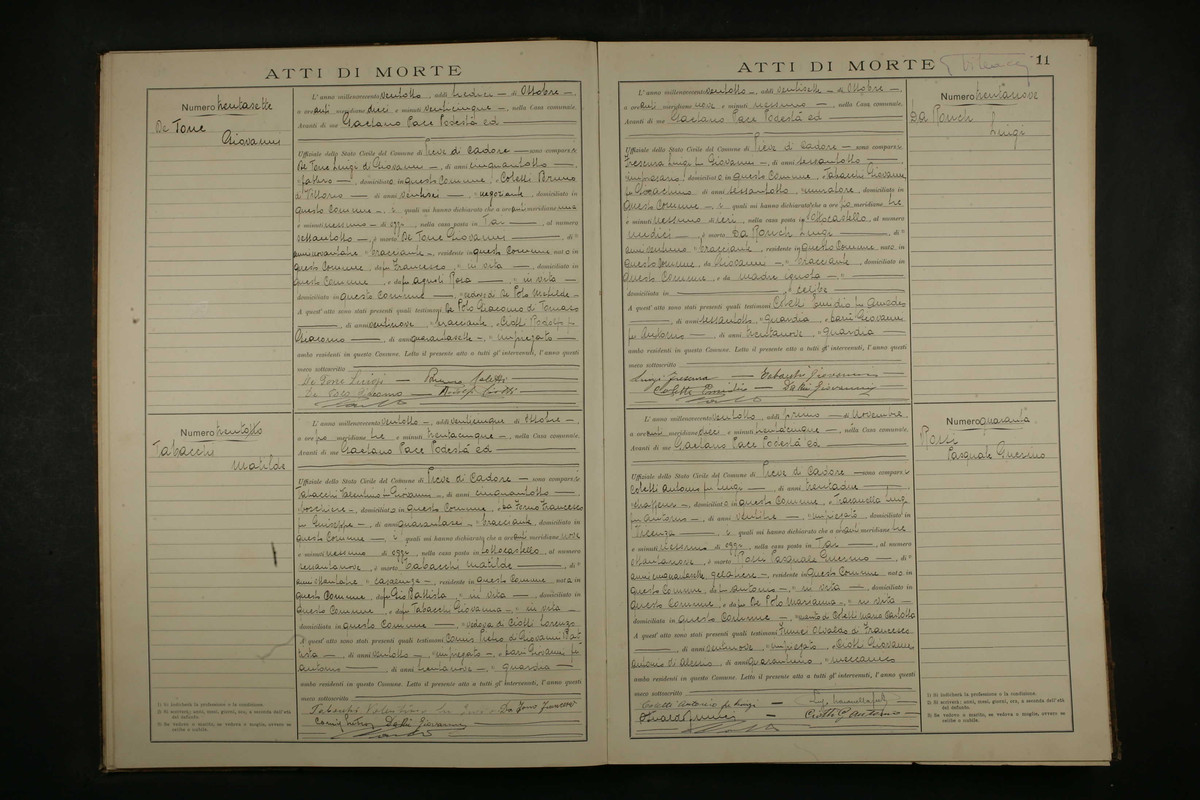 ATTI DI MORTE
Numero trentasette
De Tone
Giovanni
L' anno millenovecento ventotto, addì tredici di Ottobre
a ore anti meridiane dieci e minuti venticinque, nella Casa comunale.
Avanti di me Gaetano Pace Podestà ed
Ufficiale dello Stato Civile del Comune di Pieve di Cadore sono comparsi
De Tone Luigi di Giovanni, di anni cinquantotto
fattino, domiciliato in questo Comune, Coletti Bruno
di Vittorio di anni ventisei, negoziante, domiciliato in
questo Comune, i quali mi hanno dichiarato che a ore anti meridiane una
e minuti nessuno di oggi, nella casa posta in Tai al numero
sessantotto, è morto De Tone Giovanni di
anni novantatre bracciante, residente in questo Comune nato in
questo Comune, da fu Francesco in vita, domiciliato in
questo Comune, e da fu Agnoli Rosa in vita
domiciliata in questo Comune De Polo Matilde
A quest' atto sono stati presenti quali testimoni De Polo Giacomo di Tomaso
, di anni ventinove bracciante, Ciotti Rodolfo fu
Giacomo, di anni quarantasette, impiegato
ambo residenti in questo Comune. Letto il presente atto a tutti gl' intervenuti, l'anno questi
meco sottoscritto
De Tone Luigi Bruno Coletti
De Polo Giacomo Rodolfo Ciotti
Numero trentotto
Tabacchi
Matilde
L' anno millenovecento ventotto, addì venticinque di Ottobre
a ore po meridiane tre e minuti trentacinque, nella Casa comunale.
Avanti di me Gaetano Pace Podestà ed
Ufficiale dello Stato Civile del Comune di Pieve di Cadore sono comparsi
Tabacchi Valentino fu Giovanni, di anni cinquantotto
boschiere, domiciliato in questo Comune, Da Forno Francesco
fu Giuseppe di anni quarantasei bracciante, domiciliato in
questo Comune, i quali mi hanno dichiarato che a ore anti meridiane nove
e minuti nessuno di oggi, nella casa posta in Sottocastello al numero
sessantanove, è morta Tabacchi Matilde di
anni settantatre casalinga, residente in questo Comune nata in
questo Comune da fu Gio Battista in vita, domiciliato in
questo Comune, e da fu Tabacchi Giovanna in vita
domiciliata in questo Comune, vedova di Ciotti Lorenzo
A quest' atto sono stati presenti quali testimoni Comis Pietro di Giovanni Bat-
tista di anni ventotto, impiegato, Davi Giovanni fu
Antonio di anni trentanove, guardia
ambo residenti in questo Comune. Letto il presente atto a tutti gl' intervenuti, l'anno questi
meco sottoscritto
Tabacchi Valentino Da Forno Francesco
Comis Pietro Davi Giovanni
1) Si indicherà la professione o la condizione.
2) Si scriverà: anni, mesi, giorni, ore, a seconda dell'età
del defunto.
3) Se vedovo o marito, se vedova o moglie, ovvero se
celibe o nubile.
ATTI DI MORTE
11
L' anno millenovecento ventotto, addì ventisette di Ottobre
a ore anti meridiane nove e minuti nessuno, nella Casa comunale.
Avanti di me Gaetano Pace Podestà ed
Ufficiale dello Stato Civile del Comune di Pieve di Cadore sono comparsi
Frescura Luigi fu Giovanni, di anni sessantotto
impresario, domiciliato in questo Comune, Tabacchi Giovanni
fu Gioachino di anni sessantotto, muratore, domiciliato in
questo Comune, i quali mi hanno dichiarato che a ore po meridiane tre
e minuti nessuno di ieri, nella casa posta in Sottocastello, al numero
undici, è morto Da Ronch Luigi di
anni ventuno bracciante, residente in questo Comune nato in
questo Comune, da Giovanni bracciante, domiciliato in
questo Comune, e da madre ignota
domiciliata in celibe
A quest' atto sono stati presenti quali testimoni Coletti Emidio fu Amedeo
, di anni sessantotto guardia, Davi Giovanni
fu Antonio, di anni trentanove guardia
ambo residenti in questo Comune. Letto il presente atto a tutti gl' intervenuti, l'anno questi
meco sottoscritto
Luigi Frescura Tabacchi Giovanni
Coletti Emidio Davi Giovanni
Numero trentanove
Da Ronch
Luigi
L' anno millenovecento ventotto, addì primo di Novembre
a ore anti meridiane dieci e minuti trentacinque, nella Casa comunale.
Avanti di me Gaetano Pace Podestà ed
Ufficiale dello Stato Civile del Comune di Pieve di Cadore sono comparsi
Coletti Antonio fu Luigi, di anni trentadue
, domiciliato in questo Comune, Luigi
fu Antonio, di anni ventitre, impiegato, domiciliato in
Vicenza, i quali mi hanno dichiarato che a ore anti meridiane tre
e minuti nessuno di oggi, nella casa posta in Tai al numero
ottantanove, è morto Rossi Pasquale Guerino, di
anni cinquantasette gelatiere, residente in questo Comune nato in
questo Comune, da fu Antonio in vita domiciliato in
questo Comune, e da fu De Polo Marianna in vita
domiciliata in questo Comune, marito di Coletti Maria Carlotta
A quest' atto sono stati presenti quali testimoni Osvaldo di Francesco
di anni ventinove, impiegato, Ciotti Giovanni
Antonio di anni quarantuno meccanico
ambo residenti in questo Comune. Letto il presente atto a tutti gl' intervenuti, l'anno questi
meco sottoscritto
Coletti Antonio fu Luigi
Osvaldo Ciotti G Antonio
Numero quaranta
Rossi
Pasquale Guerino
1) Si indicherà la professione o la condizione.
2) Si scriverà: anni, mesi, giorni, ore, a seconda dell'età
del defunto.
3) Se vedovo o marito, se vedova o moglie, ovvero se
celibe o nubile.